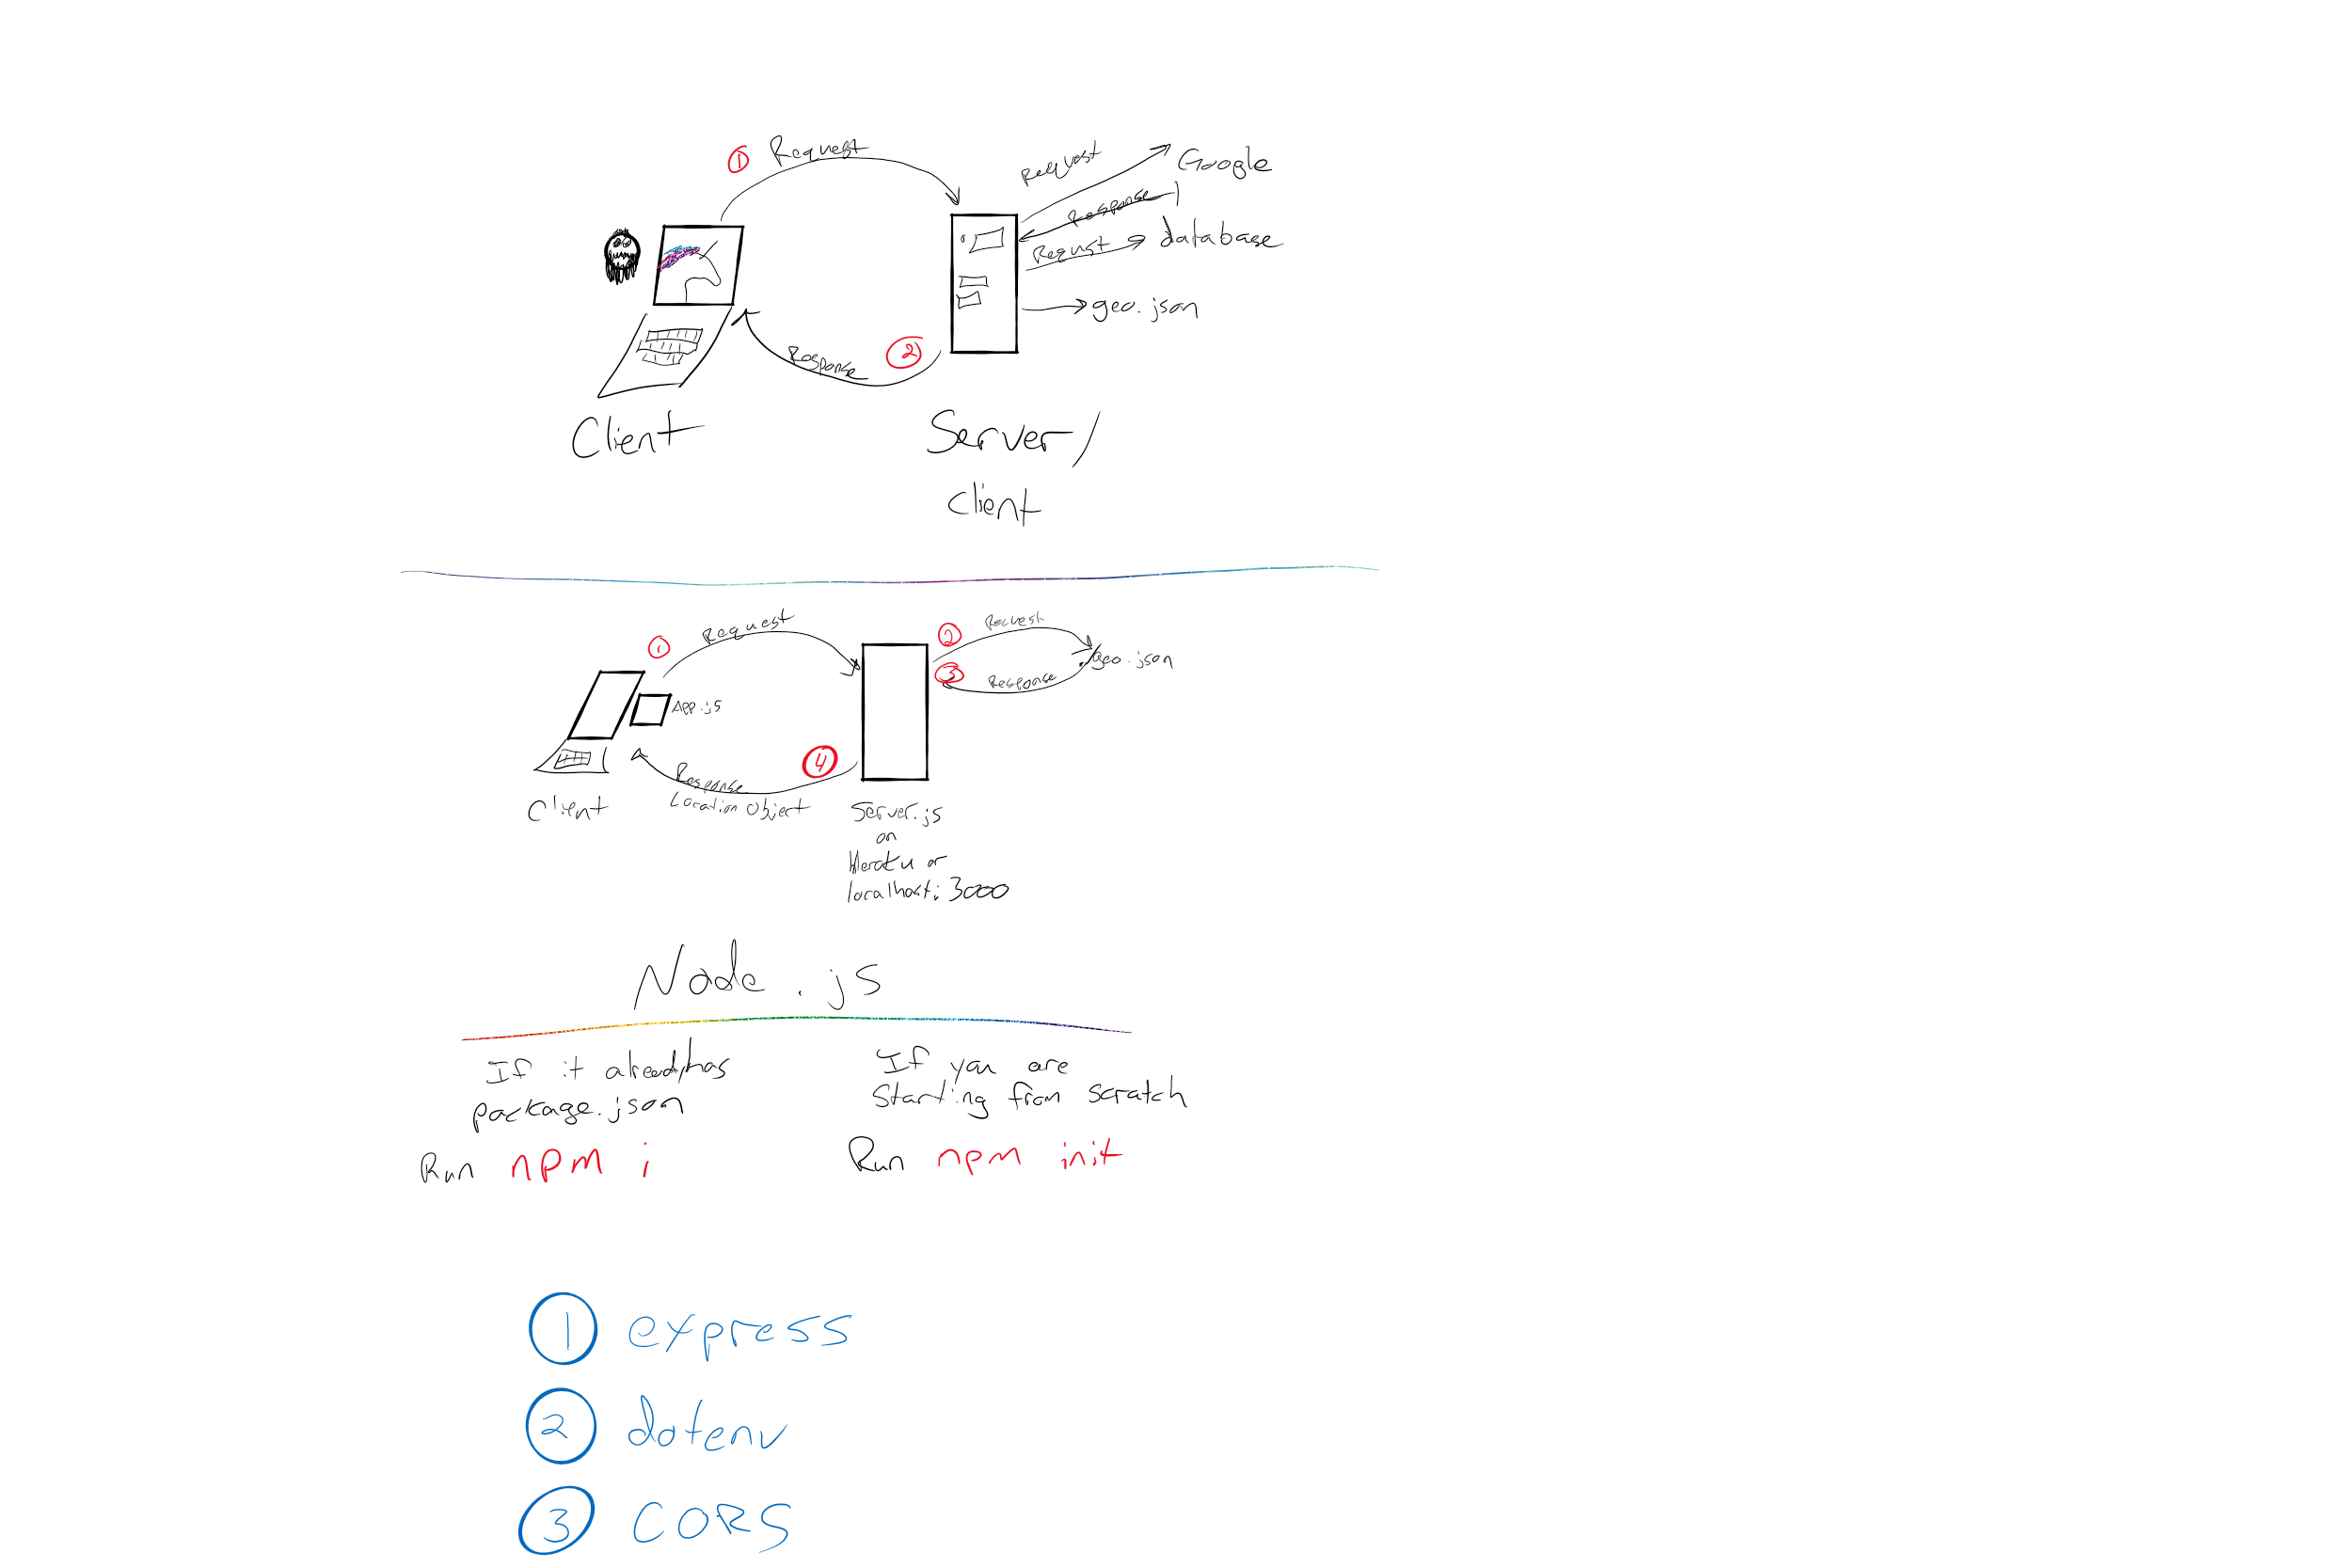 ① Request
Request
Google
Response
Request
database
geo.json
Response
②
Client
Server/
Client
① Request
② Request
./geo.json
③ Response
App.js
④
Response
Location Object
Client
Server.js
on
Heroku or
localhost:3000
Node.js
If it already has
package.json
Run npm i
If you are
starting from scratch
Run npm init
① express
② dotenv
③ CORS